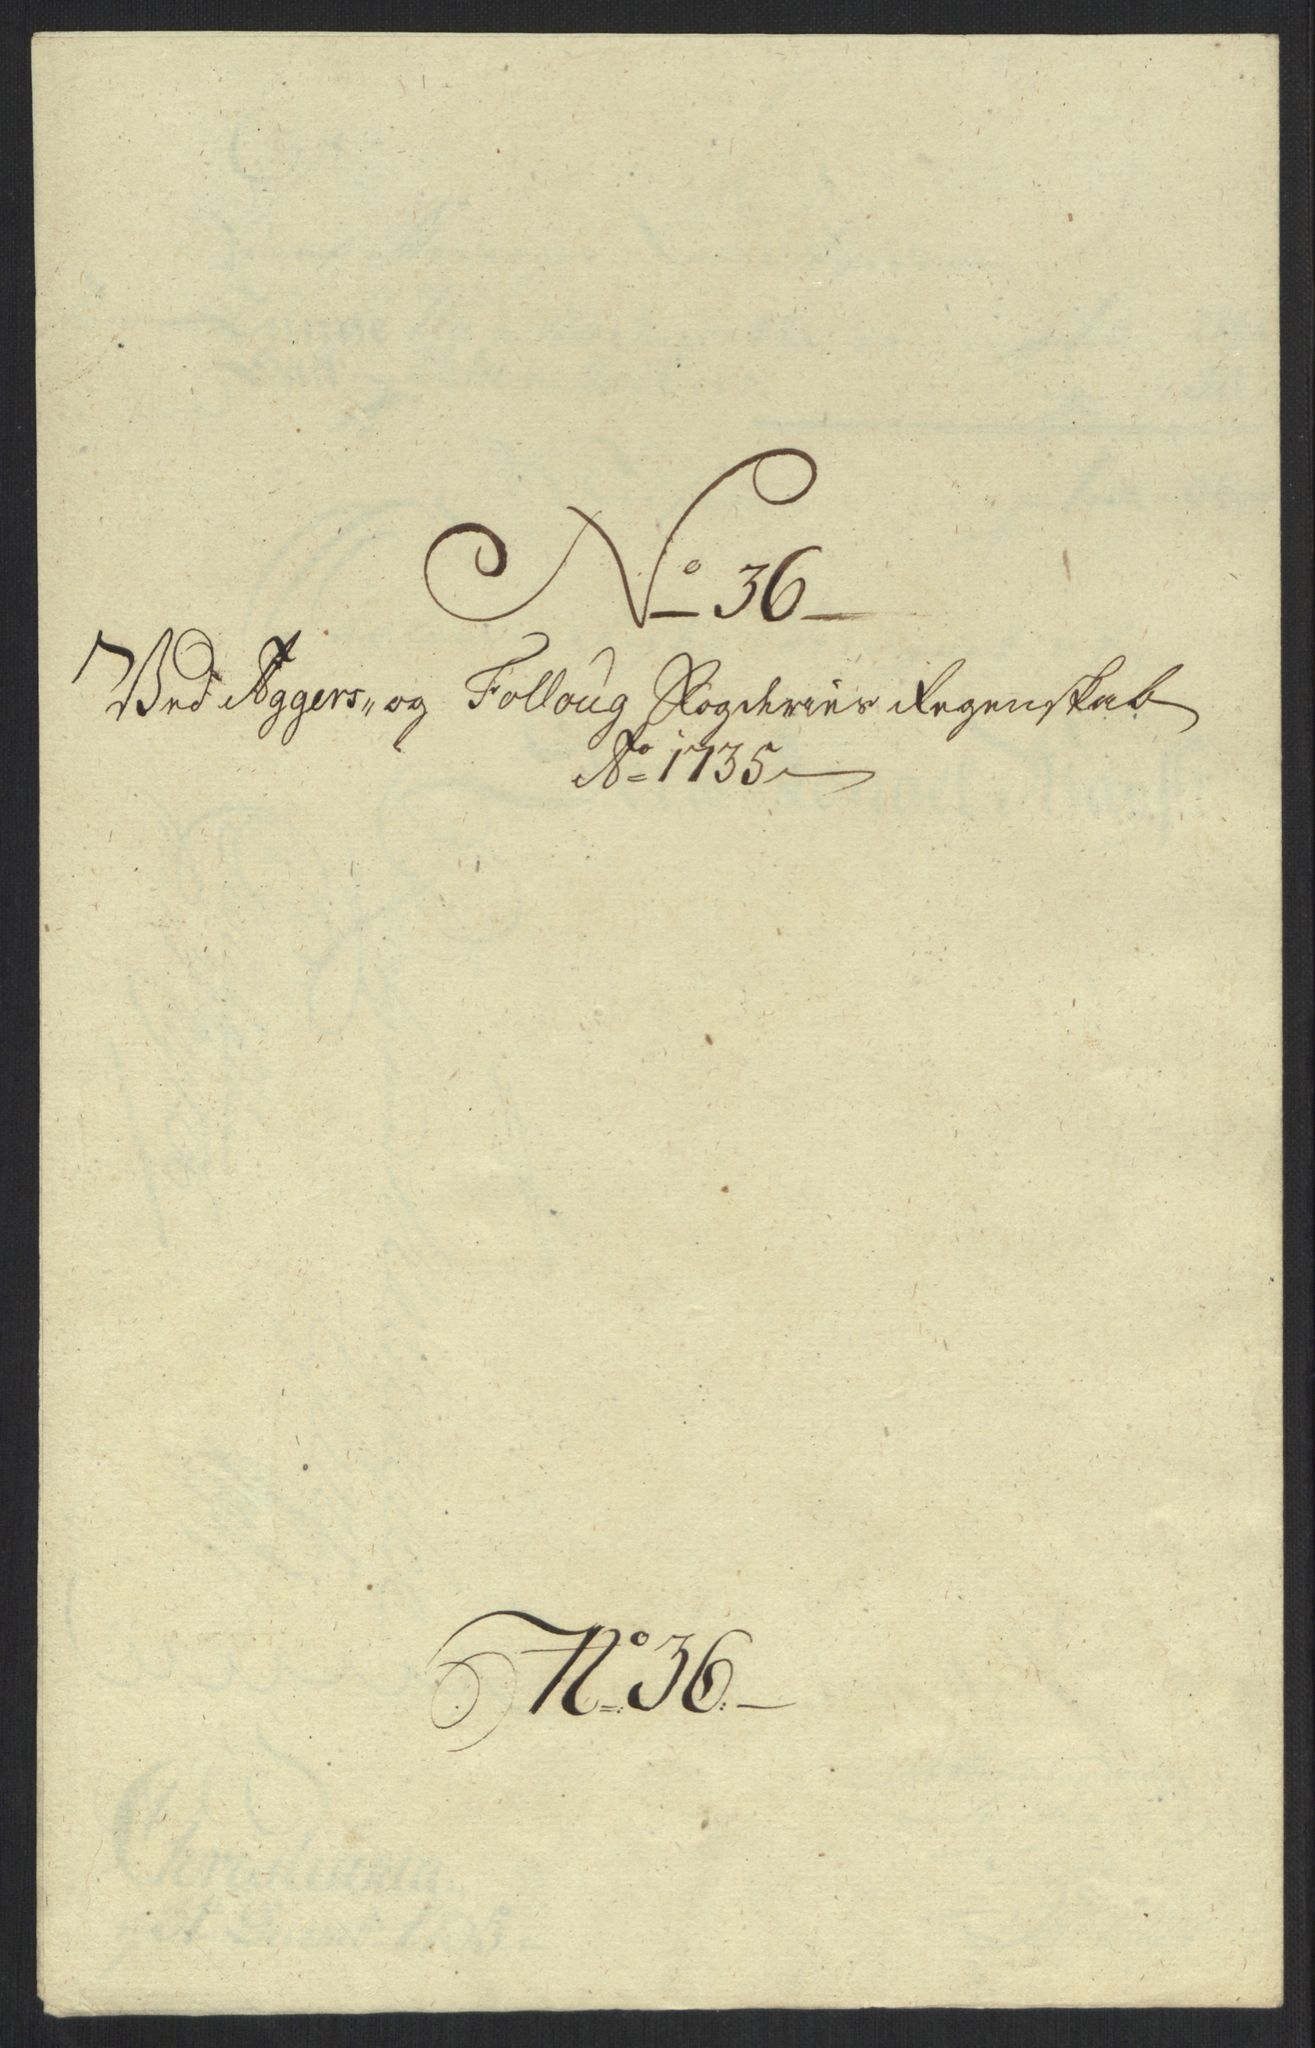 No 36
Ved Aggers„ og Folloug Fogderies Regenskab
Ao 1735
No 36